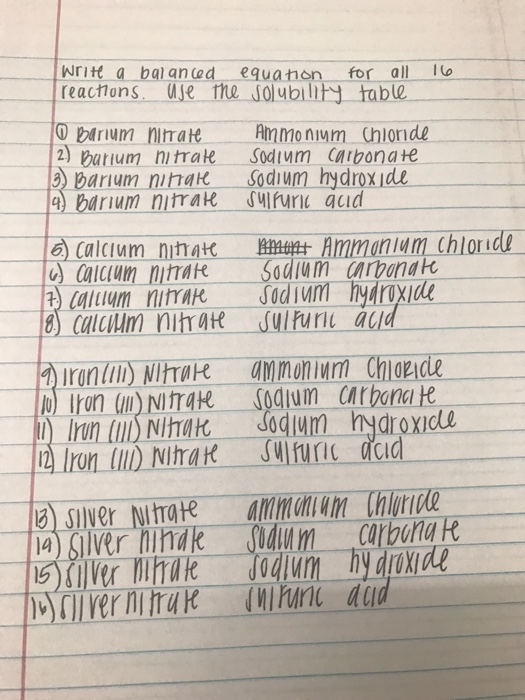 Write a balanced equation for all 16
reactions. Use the solubility table
① Barium nitrate Ammonium chloride
2) Barium nitrate Sodium carbonate
3) Barium nitrate Sodium hydroxide
4) Barium nitrate Sulfuric acid
5) Calcium nitrate Ammonium chloride
6) Calcium nitrate Sodium carbonate
7) Calcium nitrate Sodium hydroxide
8) Calcium nitrate Sulfuric acid
9) Iron (III) Nitrate ammonium Chloride
10) Iron (III) Nitrate Sodium Carbonate
11) Iron (III) Nitrate Sodium hydroxide
12) Iron (III) Nitrate Sulfuric acid
13) Silver Nitrate ammonium Chloride
14) Silver nitrate Sodium carbonate
15) Silver nitrate Sodium hydroxide
16) Silver nitrate Sulfuric acid